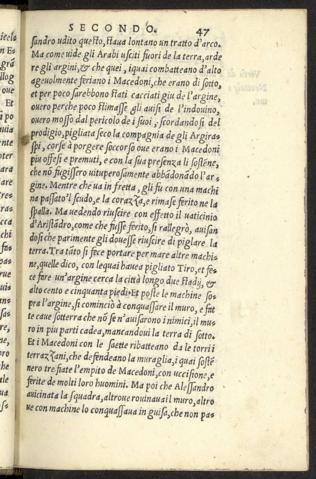 SECONDO. 47
sandro udito questo, staua lontano un tratto d'arco.
Ma come uide gli Arabi usciti fuori de la terra, arde
re gli argini, & che quei, iquai combatteano d'alto
ageuolmente feriano i Macedoni, che erano di sotto,
et per poco sarebbono stati cacciati giu de l'argine,
ouero perche poco stimasse gli auisi de l'indouino,
ouero mosso dal pericolo de i suoi, scordandosi del
prodigio, pigliata seco la compagnia de gli Argira=
spi, corse à porgere soccorso oue erano i Macedoni
piu offesi e premuti, e con la sua presenza li sostẽne,
che nõ fugissero uituperosamente abbãdonãdo l'ar=
gine. Mentre che ua in fretta, gli fu con una machi
na passato'l scudo, e la corazza, e rimase ferito ne la
spalla. Ma uedendo riuscire con effetto il uaticinio
d'Aristãdro, come che fusse ferito, si rallegrò, auisan
dosi che parimente gli douesse riuscire di pigliare la
terra. Tra tãto si fece portare per mare altre machi=
ne, quelle dico, con lequai haueua pigliato Tiro, et fe=
ce fare un'argine cerca la città longo due stadij, &
alto cento e cinquanta piedi. Et poste le machine so=
pra l'argine, si cominciò à conquassare il muro, e fat
te caue sotterra che nõ se n'auisarono i nimici, il mu=
ro in piu parti cadea, mancandoui la terra di sotto.
Et i Macedoni con le saette ribatteano da le torri i
terrazzani, che defendeano la muraglia, i quai sostẽ
nero tre fiate l'empito de Macedoni, con uccisione, e
ferite de molti loro huomini. Ma poi che Alessandro
auicinata la squadra, altroue rouinaua il muro, altro
ue con machine lo conquassaua in guisa, che non pas=